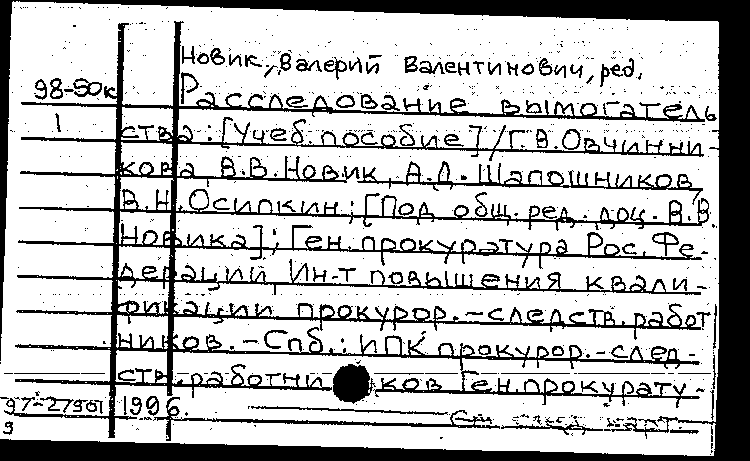 Новик, Валерий Валентинович, ред.
98-50к Расследование вымогатель
1 ства : [Учеб. пособие] / Г.В.Овчинни-
кова, В.В.Новик, А.Д.Шапошников,
В.Н.Осипкин ; [Под общ. ред. доц. В.В.
Новика] ; Ген. прокуратура Рос. Фе-
дерации, Ин-т повышения квали-
фикации прокурор.-следств. работ
ников. - Спб. : ИПК прокурор.-след-
ств. работников Ген. прокурату-
97-27901 1996.
9 См. след. карт.